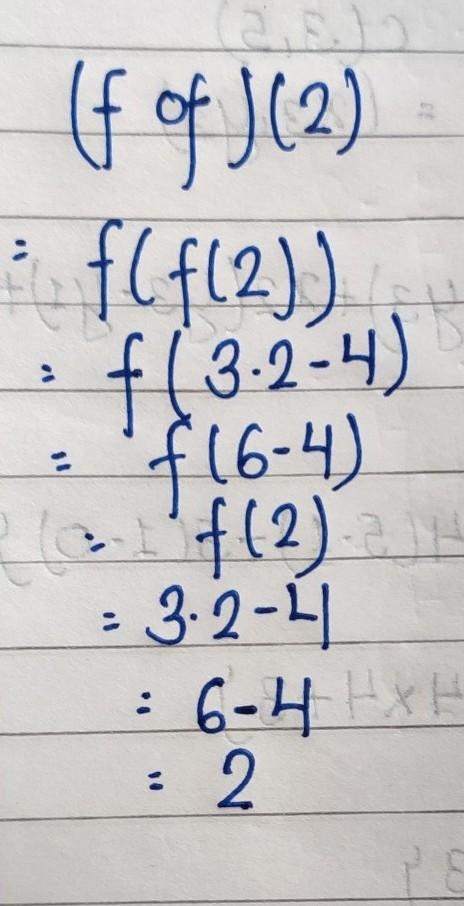 (f of)(2)
= f(f(2))
= f(3·2-4)
= f(6-4)
= f(2)
= 3·2-4
= 6-4
= 2